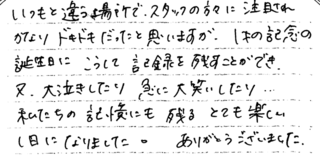 いつもと違う場所で、スタッフの方々に注目され
かなりドキドキだったと思いますが、1才の記念の
誕生日に こうして 記録を残すことができ、
又、大泣きしたり 急に大笑いしたり…
私たちの 記憶にも 残る とても楽しい
1日になりました。 ありがとうございました。